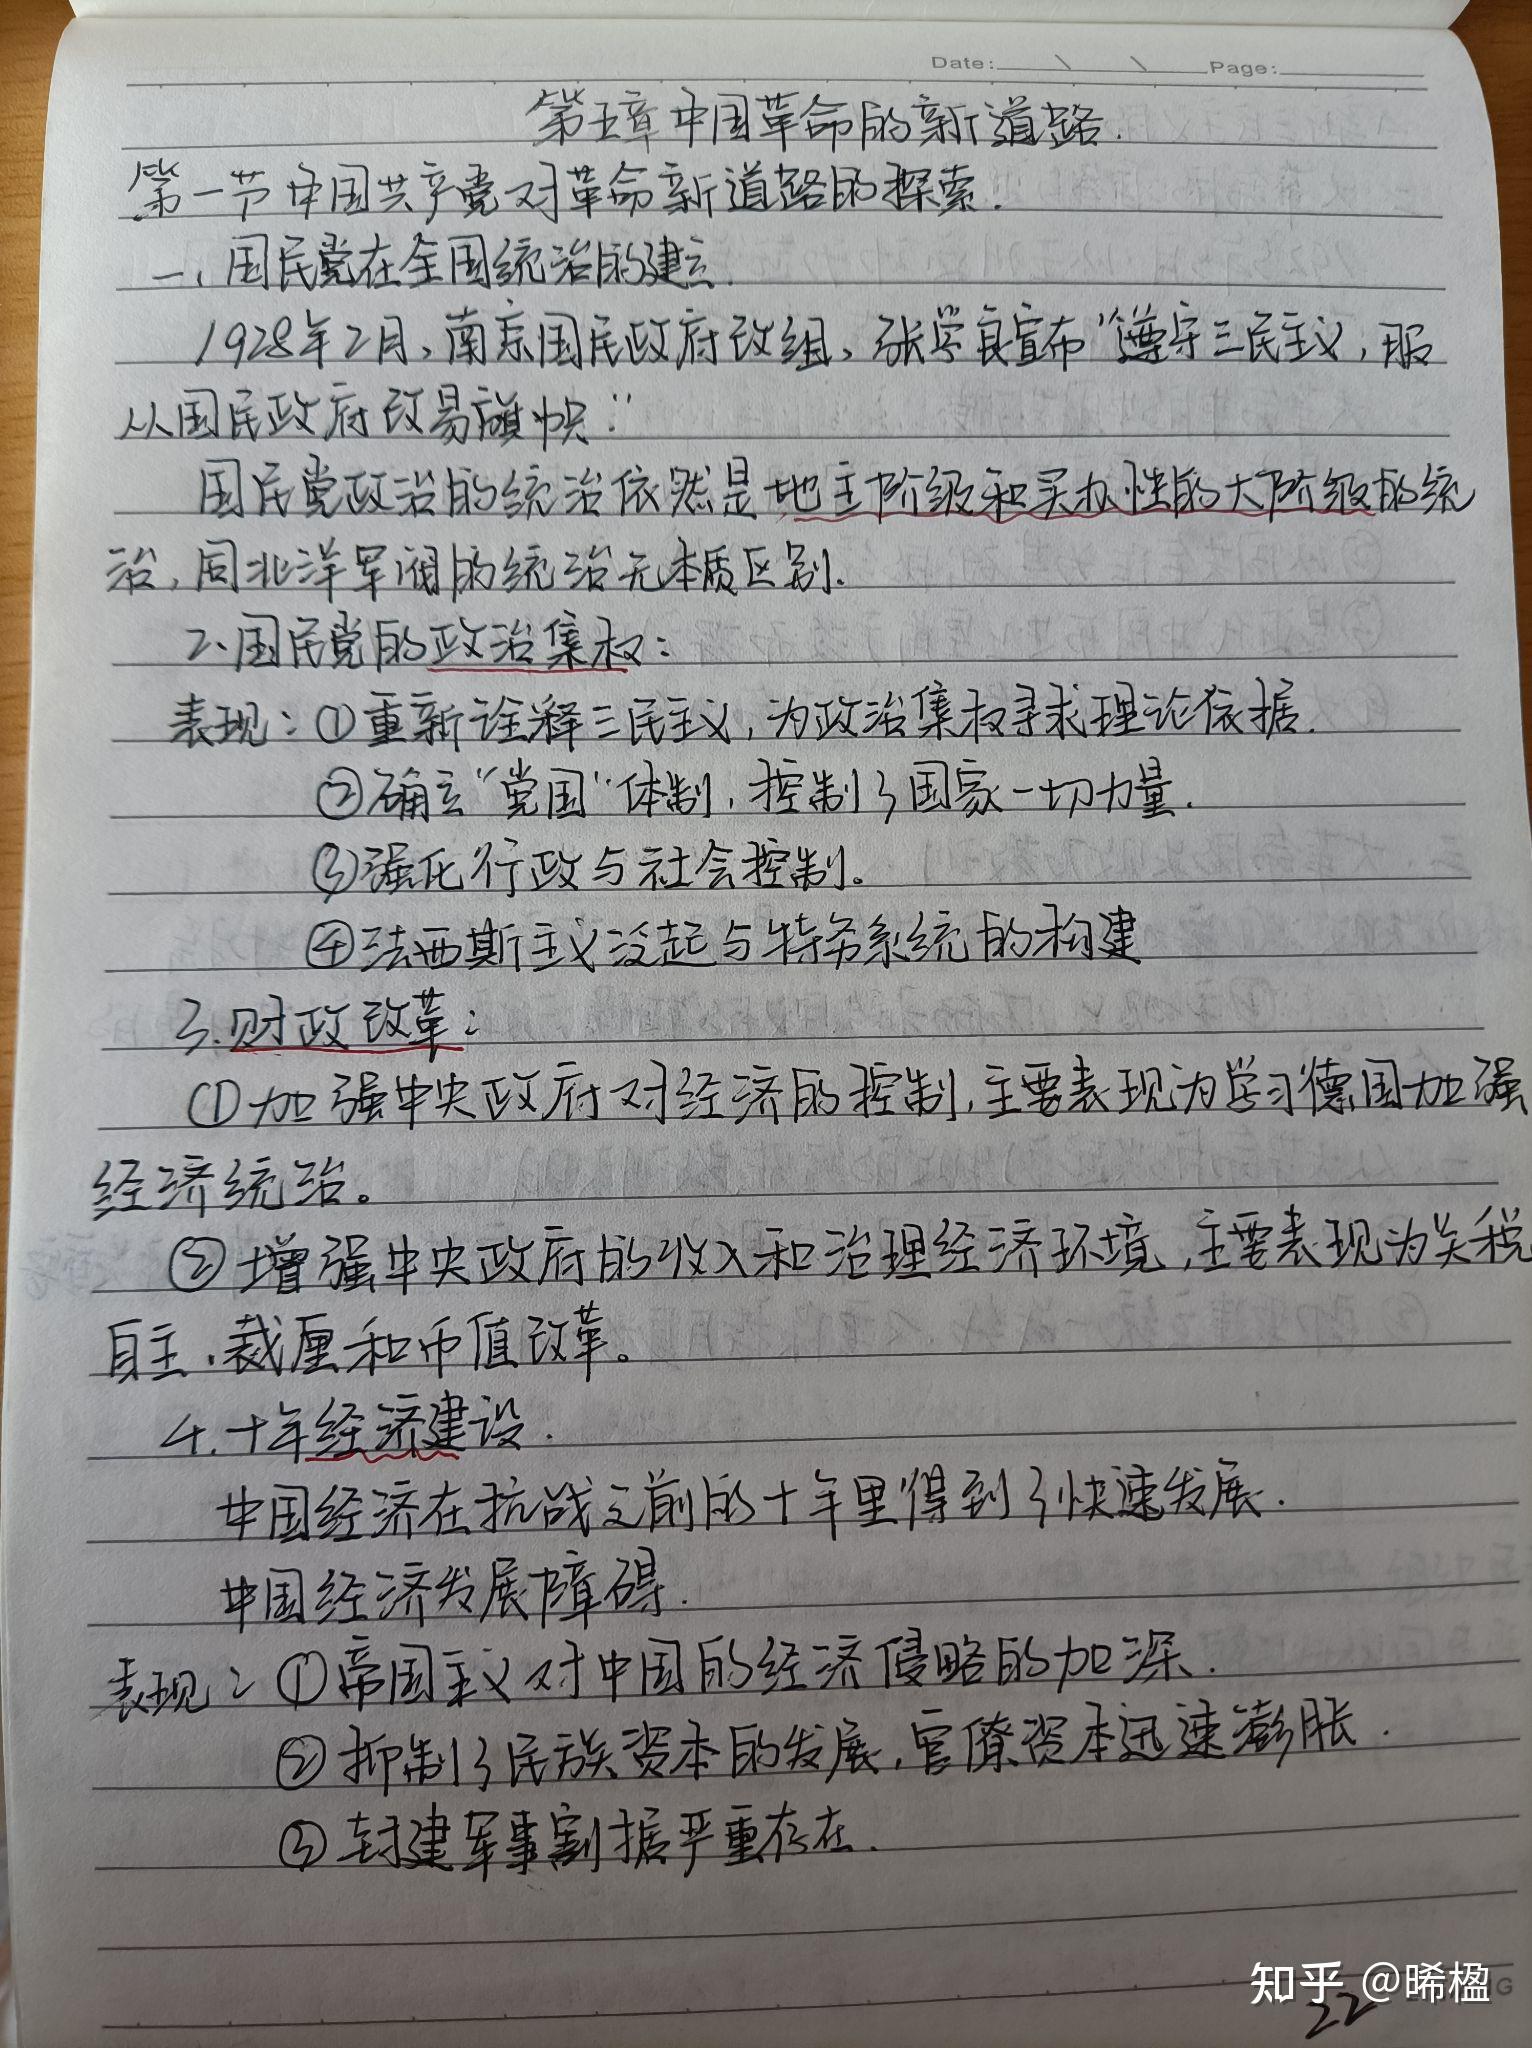 Date: Page:
第五章中国革命的新道路.
第一节中国共产党对革命新道路的探索.
一、国民党在全国统治的建立.
1928年2月,南京国民政府改组,张学良宣布“遵守三民主义,服
从国民政府改易旗帜.”
国民党政治的统治依然是地主阶级和买办性的大阶级的统
治,同北洋军阀的统治无本质区别.
2.国民党的政治集权:
表现:①重新诠释三民主义,为政治集权寻求理论依据.
②确立“党国”体制,控制了国家一切力量.
③强化行政与社会控制。
④法西斯主义没起与特务系统的构建
3.财政改革:
①加强中央政府对经济的控制,主要表现为学习德国加强
经济统治。
②增强中央政府的收入和治理经济环境,主要表现为关税
自主.裁厘和币值改革。
4.十年经济建设.
中国经济在抗战之前的十年里得到了快速发展.
中国经济发展障碍.
表现:①帝国主义对中国的经济侵略的加深.
②抑制了民族资本的发展,官僚资本迅速膨胀.
③封建军事割据严重存在.
知乎 @晞楹
22